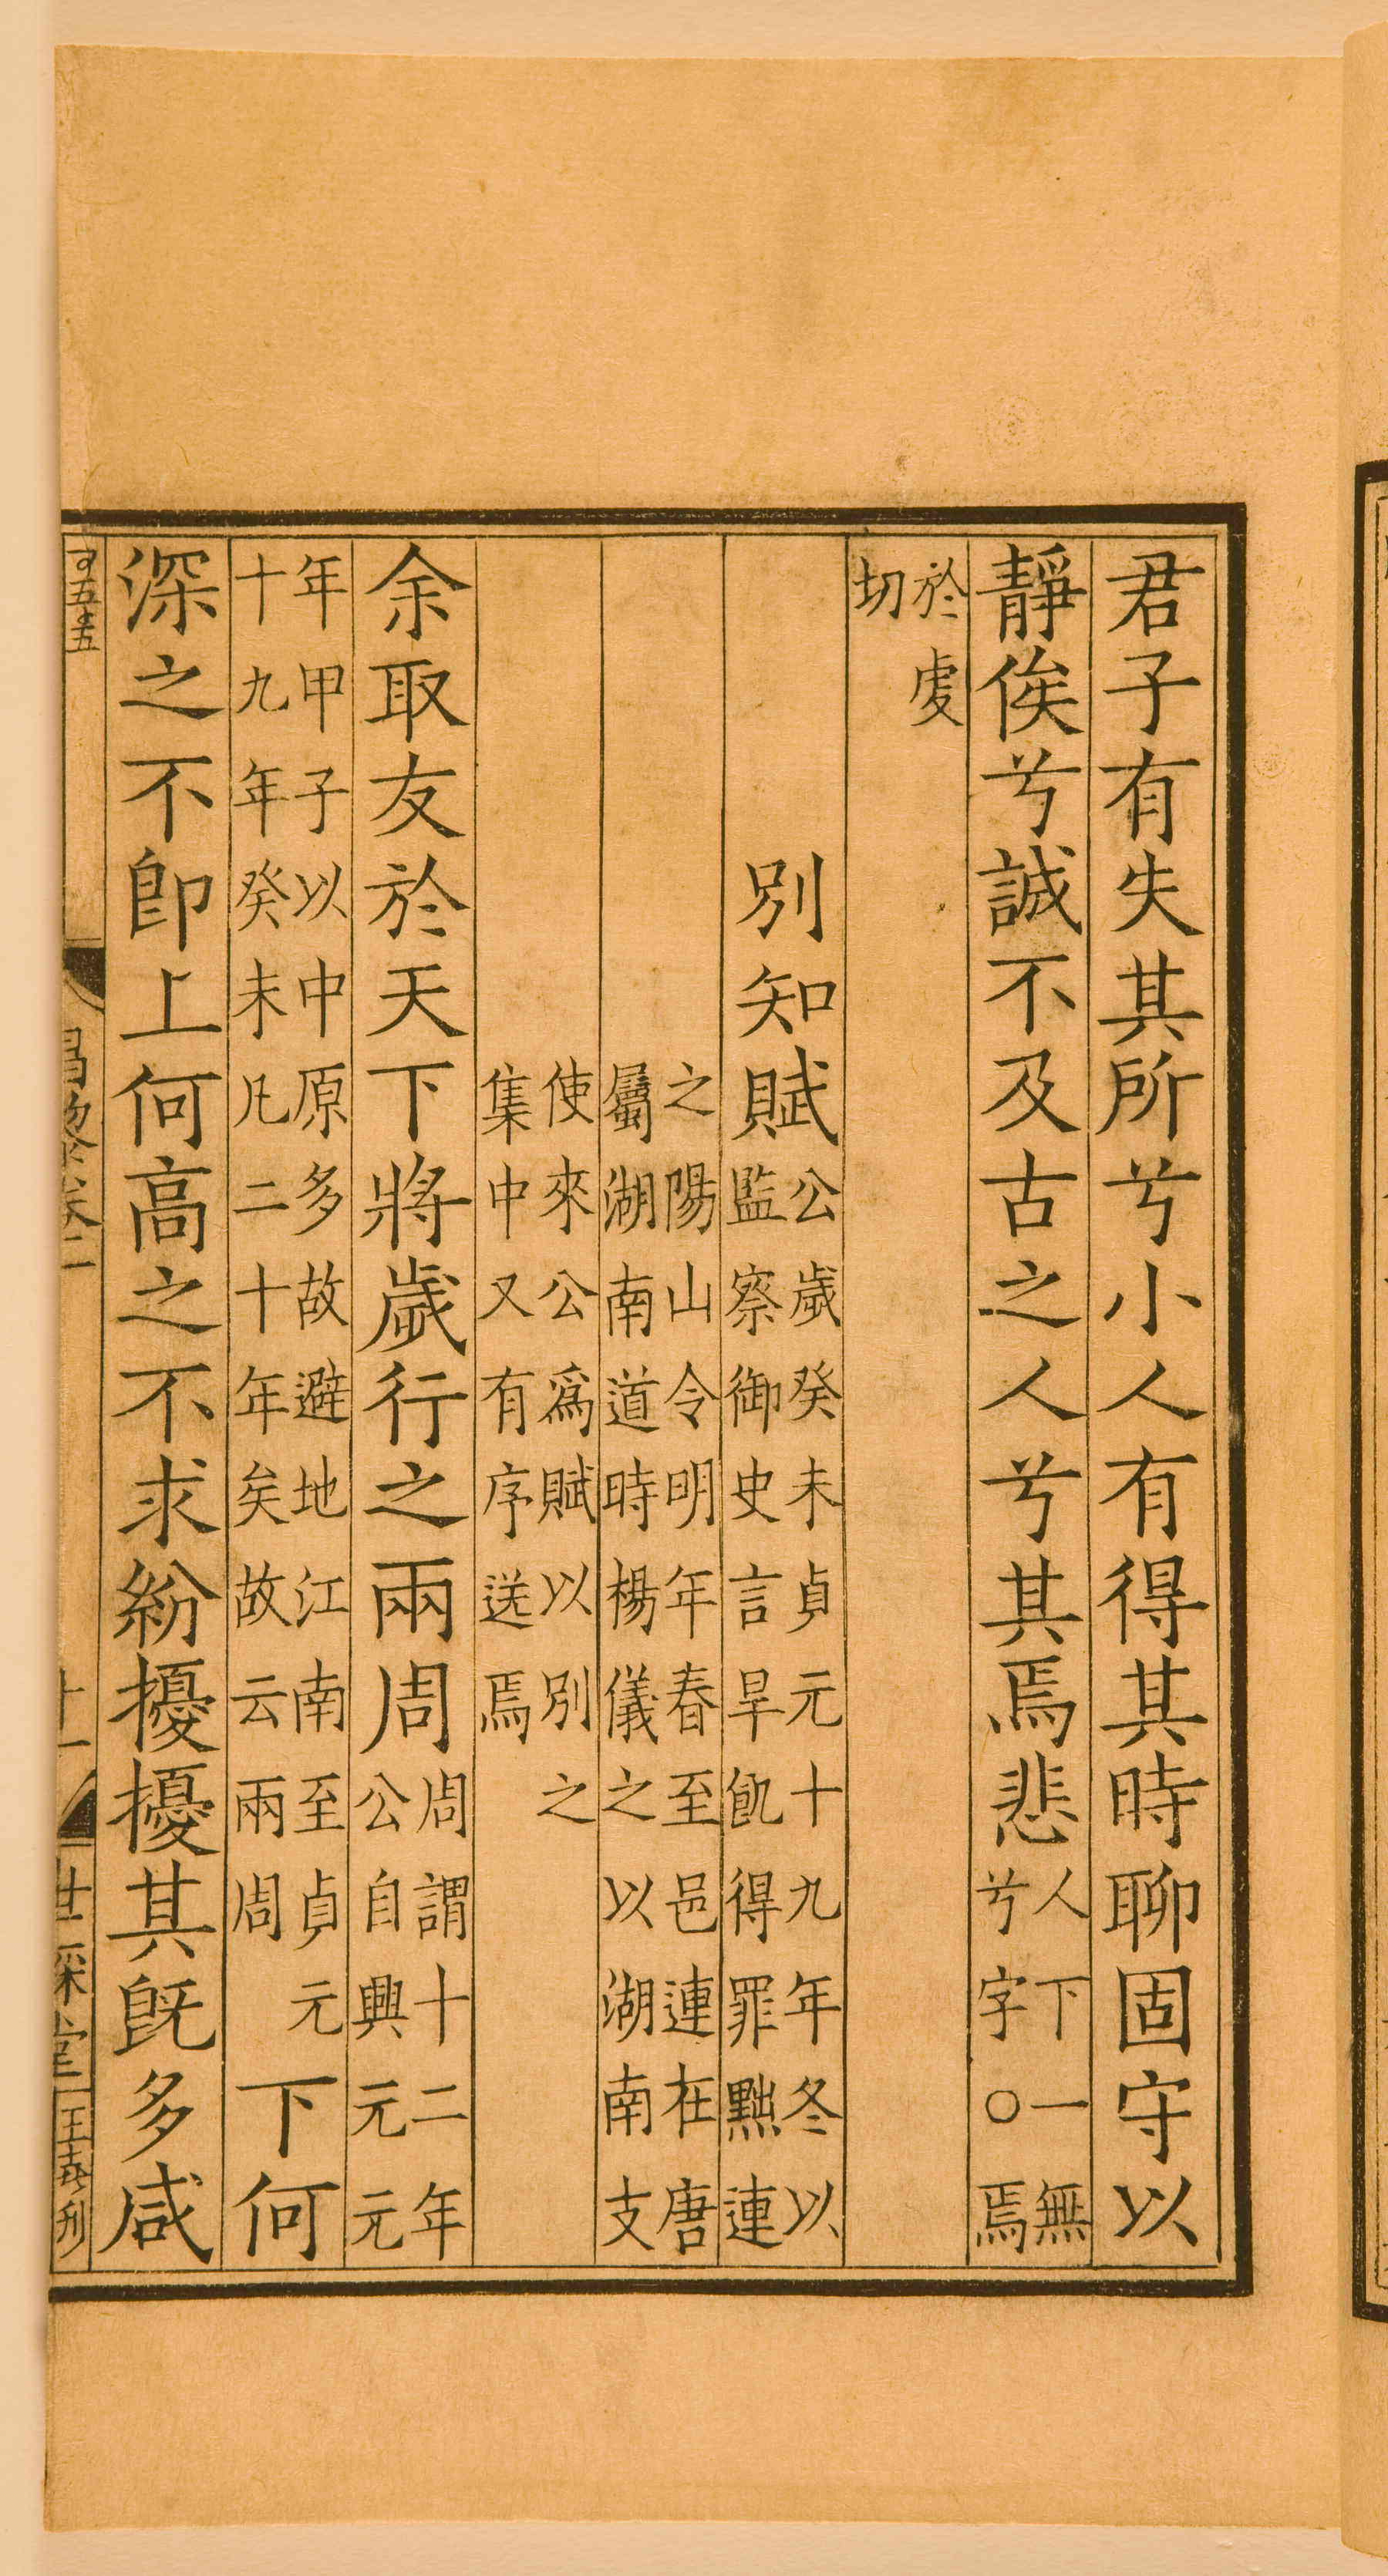 君子有失其所兮小人有得其時聊固守以
靜俟兮誠不及古之人兮其焉悲人下一無兮字○焉
於虔切
別知賦公歲癸未貞元十九年冬以監察御史言旱飢得罪黜連
之陽山令明年春至邑連在唐屬湖南道時楊儀之以湖南支
使來公爲賦以別之集中又有序送焉
余取友於天下將歲行之兩周周謂十二年公自興元元
年甲子以中原多故避地江南至貞元十九年癸未凡二十年矣故云兩周下何
深之不卽上何高之不求紛擾擾其旣多咸
昌黎卷二
十一
世綵堂